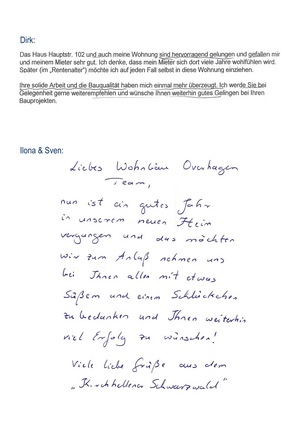 Dirk:
Das Haus Hauptstr. 102 und auch meine Wohnung sind hervorragend gelungen und gefallen mir
und meinem Mieter sehr gut. Ich denke, dass mein Mieter sich dort viele Jahre wohlfühlen wird.
Später (im „Rentenalter") möchte ich auf jeden Fall selbst in diese Wohnung einziehen.
Ihre solide Arbeit und die Bauqualität haben mich einmal mehr überzeugt. Ich werde Sie bei
Gelegenheit gerne weiterempfehlen und wünsche Ihnen weiterhin gutes Gelingen bei Ihren
Bauprojekten.
Ilona & Sven:
Liebes Wohnbau Overhagen
Team,
nun ist ein gutes Jahr
in unserem neuen Heim
vergangen und das möchten
wir zum Anlaß nehmen uns
bei Ihnen allen mit etwas
Süßem und einem Schlückchen
zu bedanken und Ihnen weiterhin
viel Erfolg zu wünschen!
Viele liebe Grüße aus dem
„Kirchhellener Schwarzwald"